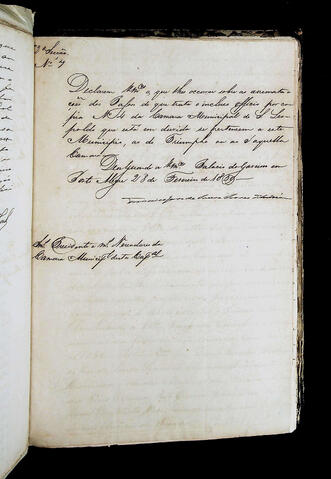 2ª Secão
Nº 7
Declarem Vmces o que lhes occorre sobre as arremata-
ções dos Passos de que trata o incluso officio por co-
pia Nº 4 da Camara Municipal de S. Leo-
poldo que está em duvida se pertencem a este
Municipio, ao de Triumpho ou ao d'aquella
Camara.
Deus Guarde a Vmces Palacio do Governo em
Porto Alegre 28 de Fevereiro de
Srs. Presidente e mais Vereadores da
Camara Municipal desta Capal